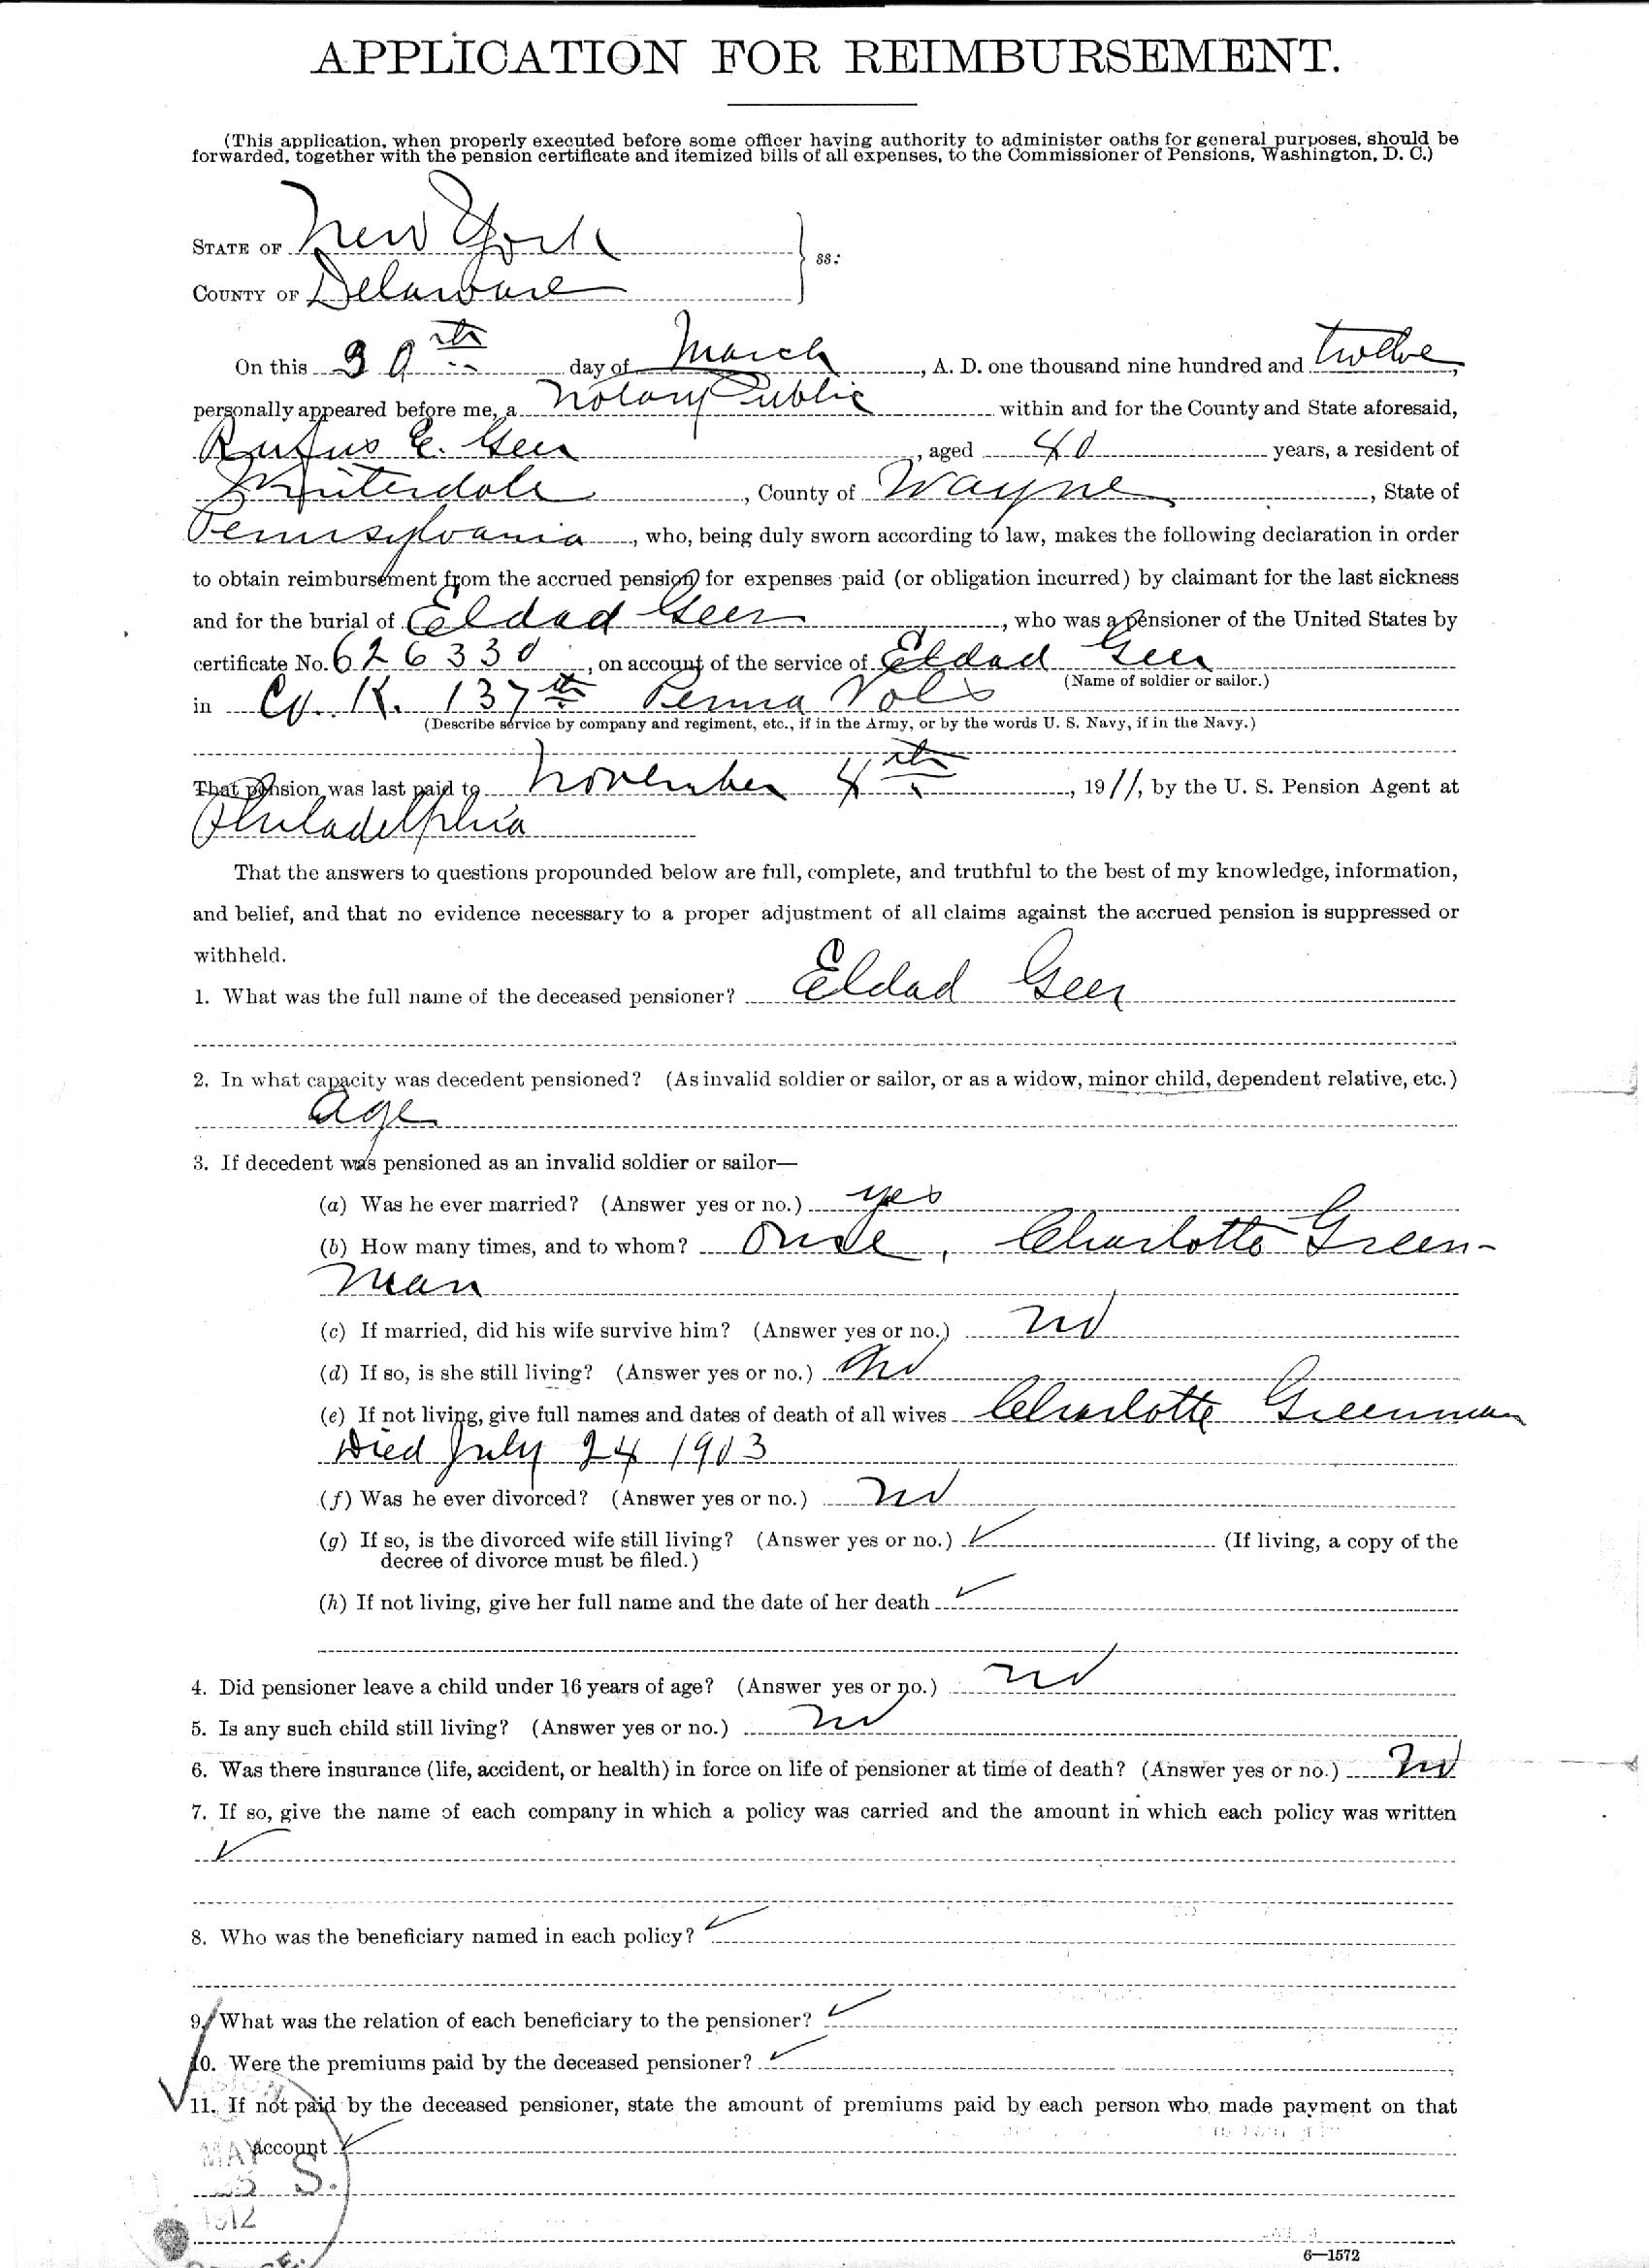 APPLICATION FOR REIMBURSEMENT.
(This application, when properly executed before some officer having authority to administer oaths for general purposes, should be
forwarded, together with the pension certificate and itemized bills of all expenses, to the Commissioner of Pensions, Washington, D. C.)
STATE OF New York
ss:
COUNTY OF Delaware
On this 30th day of March, A. D. one thousand nine hundred and twelve,
personally appeared before me, a Notary Public within and for the County and State aforesaid,
Rufus E. Geer, aged 40 years, a resident of
Winterdale, County of Wayne, State of
Pennsylvania, who, being duly sworn according to law, makes the following declaration in order
to obtain reimbursement from the accrued pension for expenses paid (or obligation incurred) by claimant for the last sickness
and for the burial of Eldad Geer, who was a pensioner of the United States by
certificate No. 626330, on account of the service of Eldad Geer
(Name of soldier or sailor.)
in Co. K. 137th Penna Vols
(Describe service by company and regiment, etc., if in the Army, or by the words U. S. Navy, if in the Navy.)
That pension was last paid to November 4th, 1911, by the U. S. Pension Agent at
Philadelphia
That the answers to questions propounded below are full, complete, and truthful to the best of my knowledge, information,
and belief, and that no evidence necessary to a proper adjustment of all claims against the accrued pension is suppressed or
withheld.
1. What was the full name of the deceased pensioner? Eldad Geer
2. In what capacity was decedent pensioned? (As invalid soldier or sailor, or as a widow, minor child, dependent relative, etc.)
age
3. If decedent was pensioned as an invalid soldier or sailor—
(a) Was he ever married? (Answer yes or no.) yes
(b) How many times, and to whom? Once, Charlotte Green-
man
(c) If married, did his wife survive him? (Answer yes or no.) no
(d) If so, is she still living? (Answer yes or no.) no
(e) If not living, give full names and dates of death of all wives Charlotte Greenman
Died July 24 1903
(f) Was he ever divorced? (Answer yes or no.) no
(g) If so, is the divorced wife still living? (Answer yes or no.) ✓ (If living, a copy of the
decree of divorce must be filed.)
(h) If not living, give her full name and the date of her death ✓
4. Did pensioner leave a child under 16 years of age? (Answer yes or no.) no
5. Is any such child still living? (Answer yes or no.) no
6. Was there insurance (life, accident, or health) in force on life of pensioner at time of death? (Answer yes or no.) no
7. If so, give the name of each company in which a policy was carried and the amount in which each policy was written
✓
8. Who was the beneficiary named in each policy? ✓
9. What was the relation of each beneficiary to the pensioner? ✓
10. Were the premiums paid by the deceased pensioner? ✓
11. If not paid by the deceased pensioner, state the amount of premiums paid by each person who made payment on that
account ✓
MAY
S.
1912
6—1572